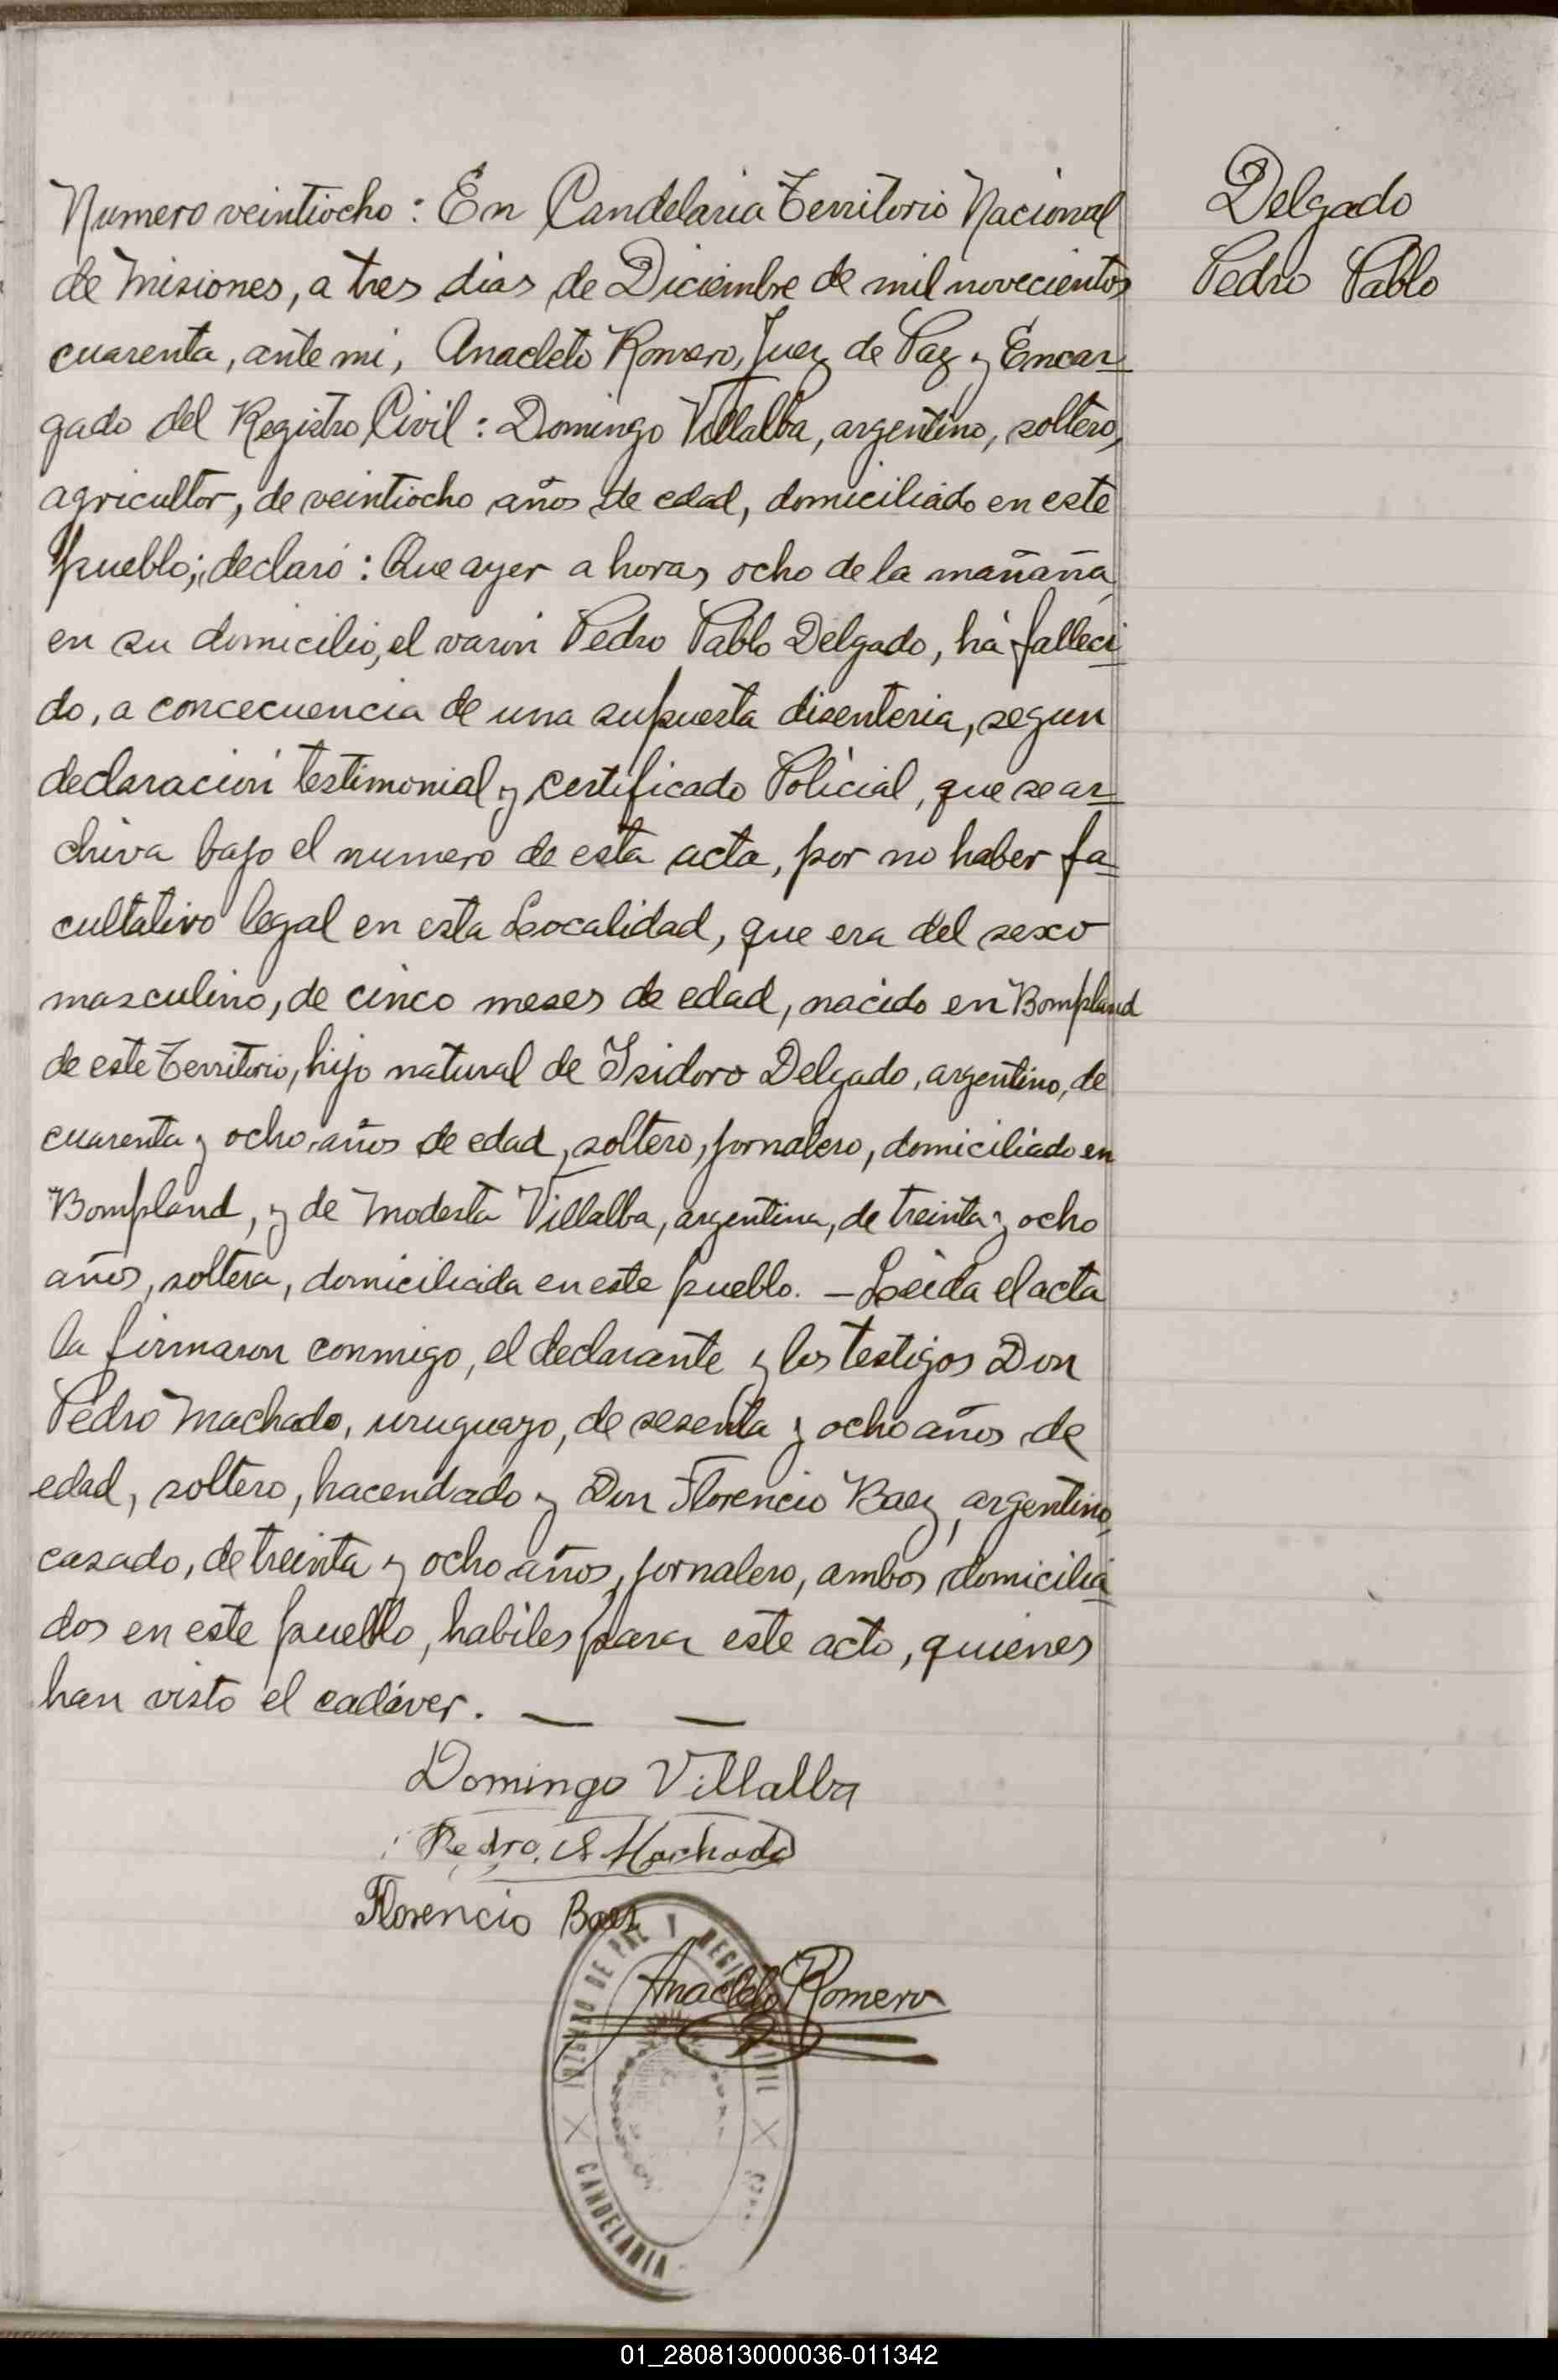 Numero veintiocho: En Candelaria Territorio Nacional
de Misiones, a tres dias de Diciembre de mil novecientos
cuarenta, ante mi, Anacleto Romero, Juez de Paz y Encar
gado del Registro Civil: Domingo Villalba, argentino, soltero,
agricultor, de veintiocho años de edad, domiciliado en este
pueblo; declaró: Que ayer a horas ocho de la mañaña,
en su domicilio, el varón Pedro Pablo Delgado, há falleci
do, a concecuencia de una supuesta disenteria, segun
declaración testimonial y certificado Policial, que se ar
chiva bajo el numero de esta acta, por no haber fa
cultativo legal en esta Localidad, que era del sexo
masculino, de cinco meses de edad, nacido en Bompland
de este Territorio, hijo natural de Isidoro Delgado, argentino, de
cuarenta y ocho años de edad, soltero, jornalero, domiciliado en
Bompland, y de Modesta Villalba, argentina, de treinta y ocho
años, soltera, domiciliada en este pueblo. — Leida el acta
la firmaron conmigo, el declarante y los testigos Don
Pedro Machado, uruguayo, de sesenta y ocho años de
edad, soltero, hacendado y Don Florencio Baez, argentino,
casado, de treinta y ocho años, jornalero, ambos domicilia
dos en este pueblo, habiles para este acto, quienes
han visto el cadáver. — —
Delgado
Pedro Pablo
Domingo Villalba
Pedro. S Machado
Florencio Baez
Anacleto Romero
JUZGADO DE PAZ Y REGISTRO CIVIL
CANDELARIA
01_280813000036-011342